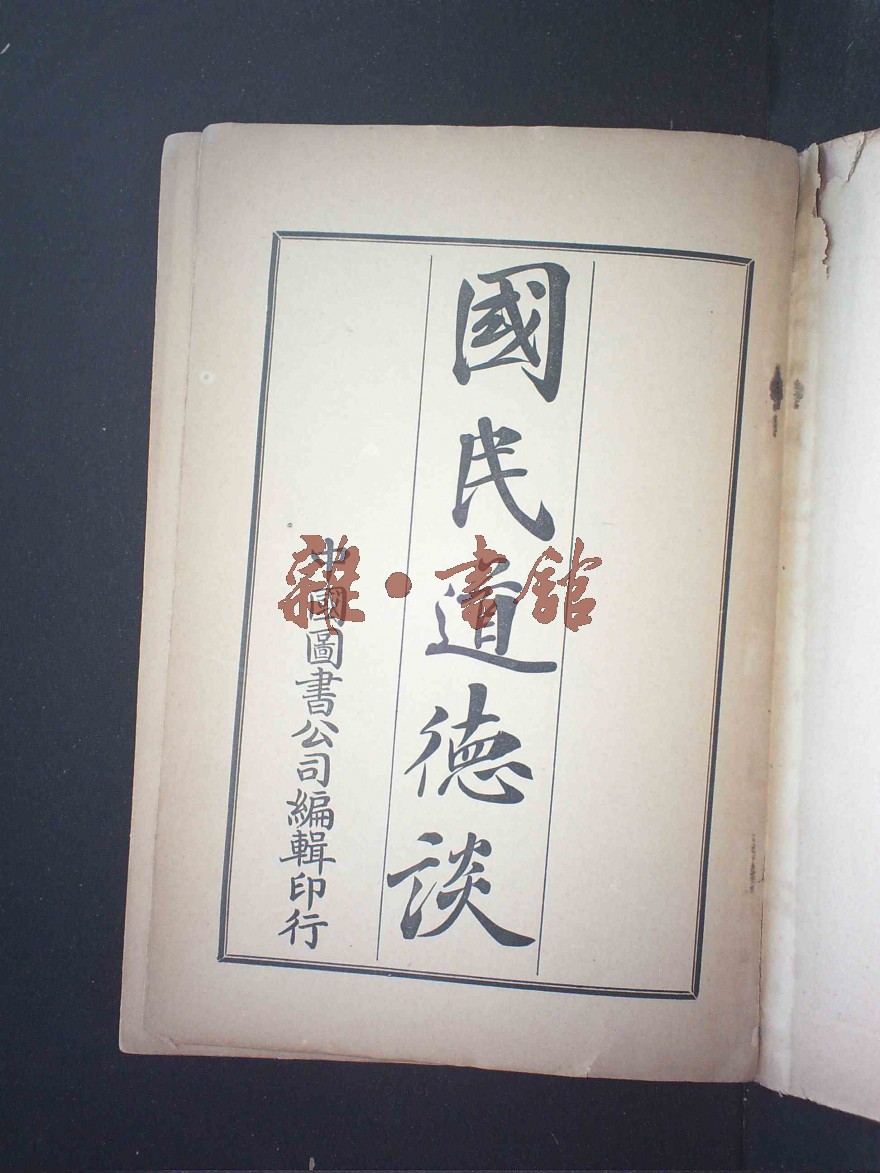 國民道德談
中國圖書公司編輯印行
雜·書館